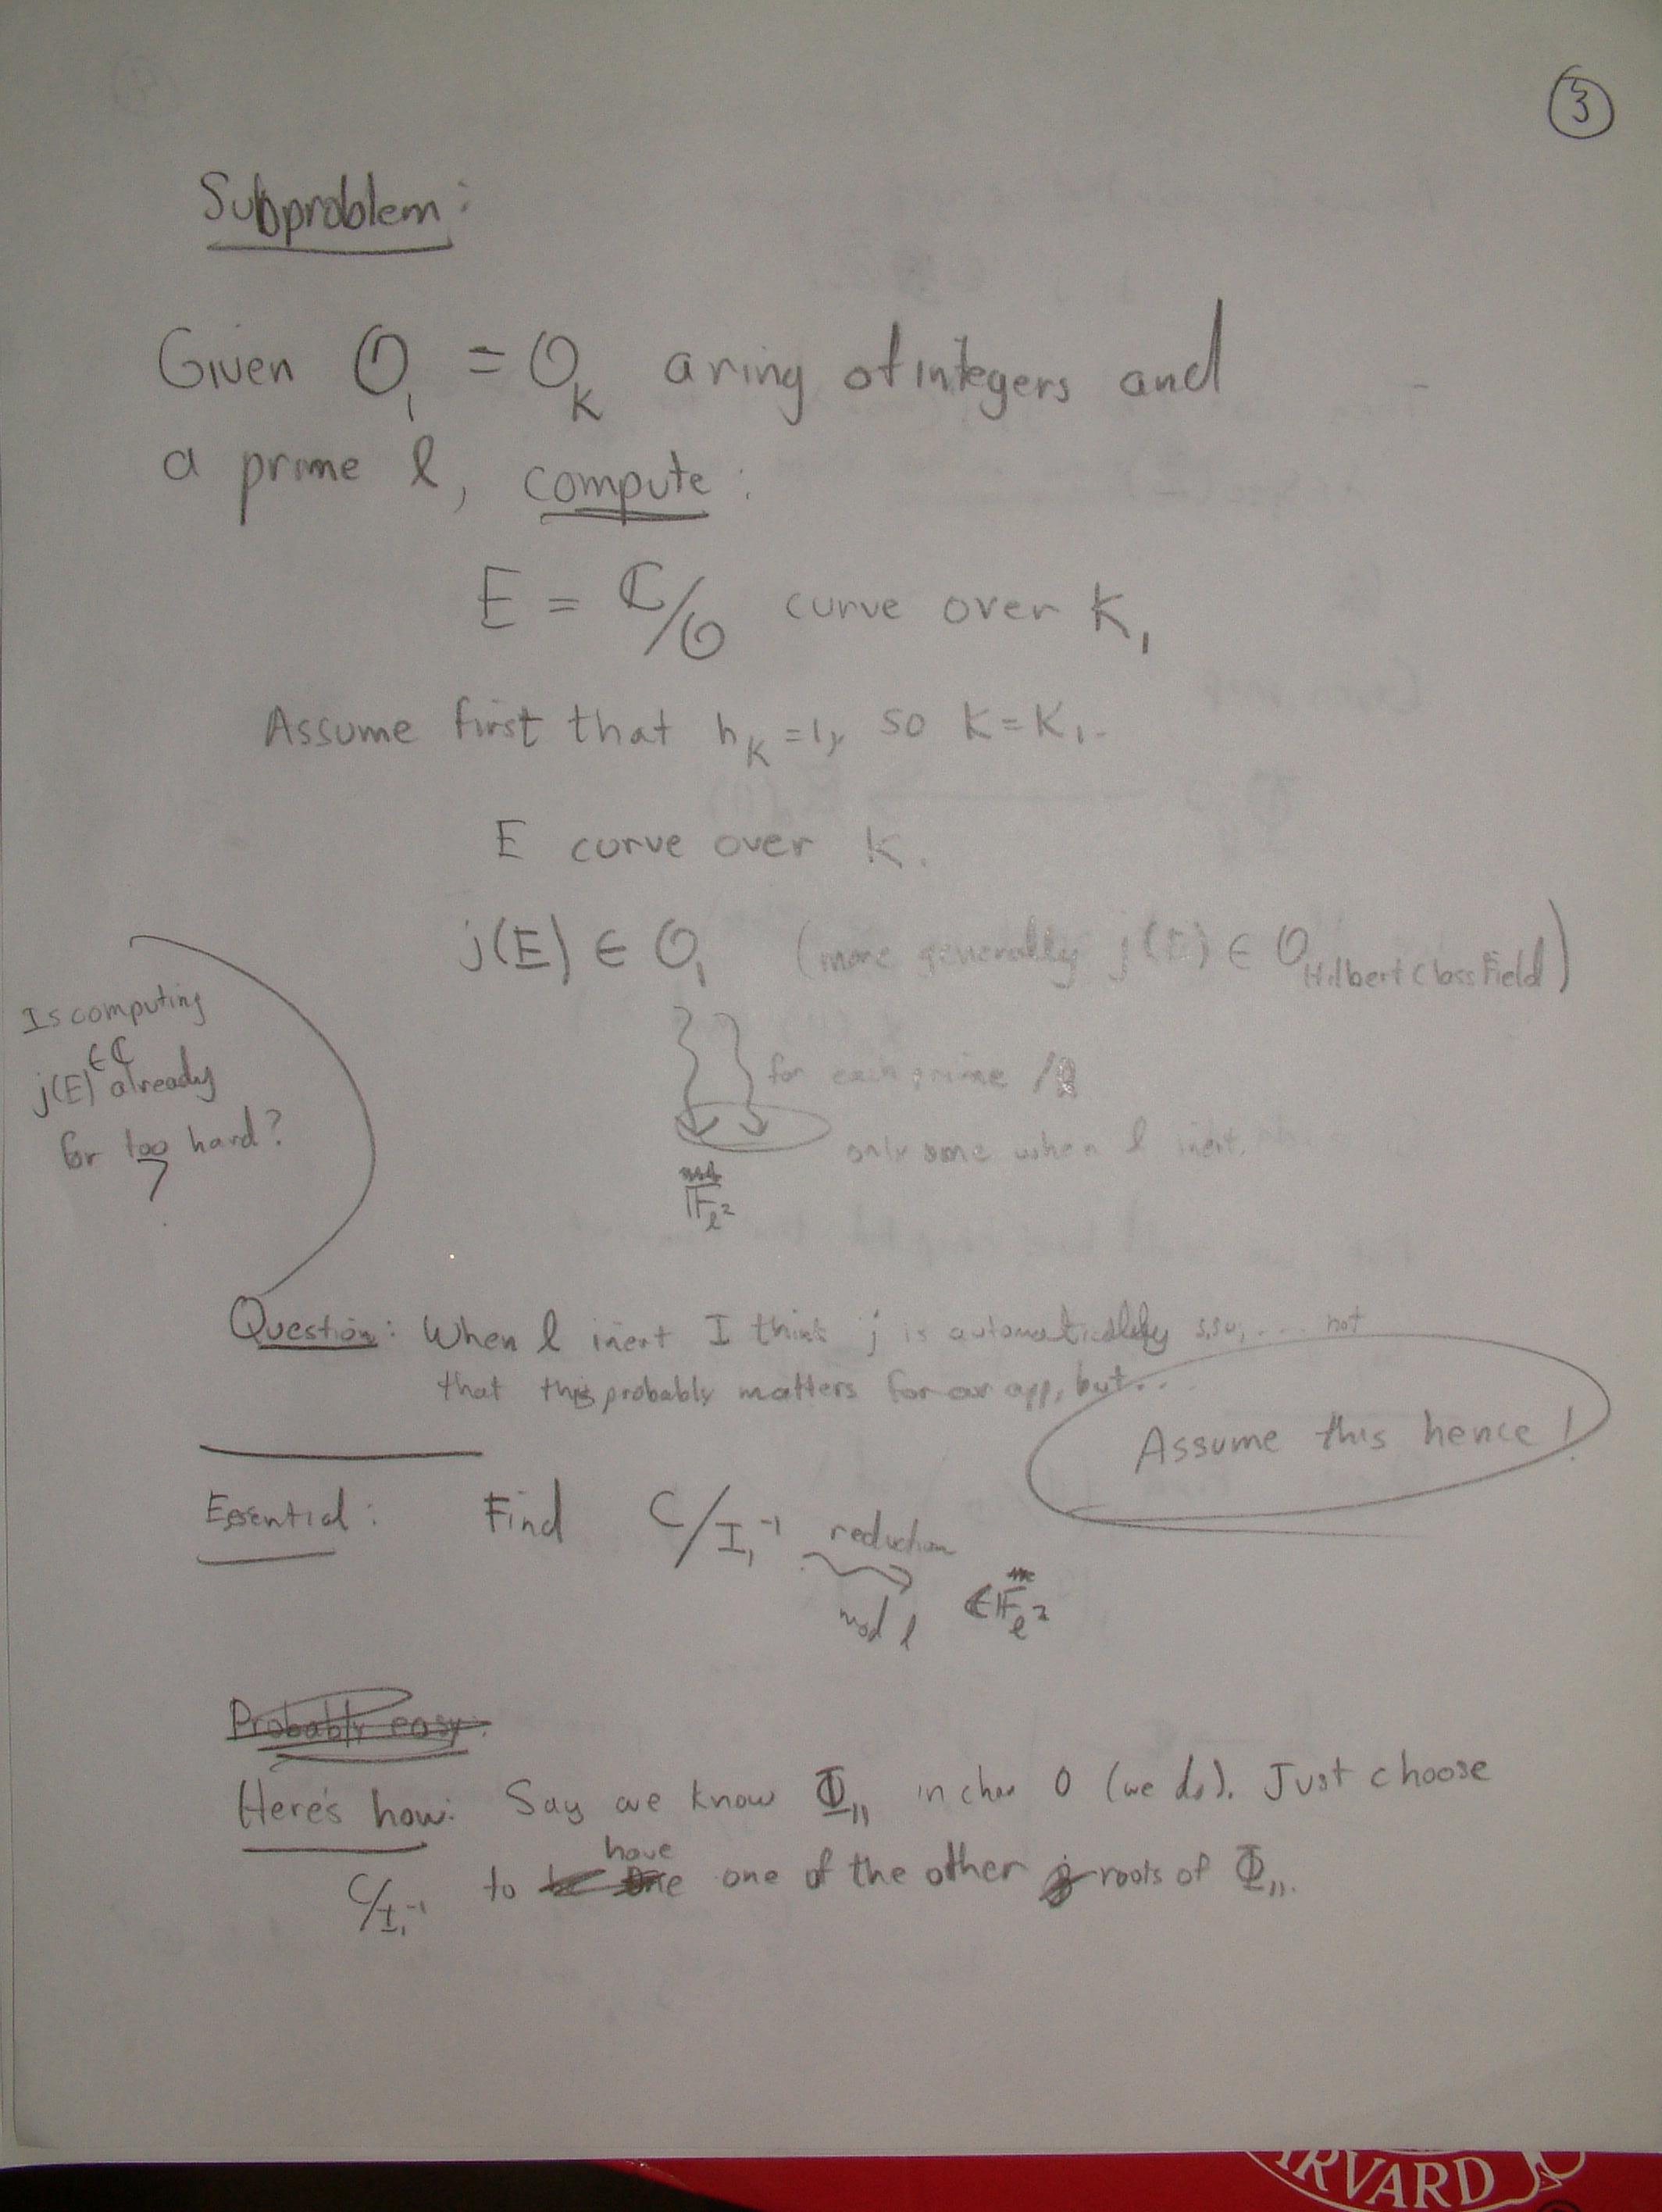 3
Subproblem:
Given O₁ = O_K a ring of integers and
a prime ℓ, compute:
E = ℂ/O curve over K₁
Assume first that h_K = 1, so K = K₁.
E curve over K.
j(E) ∈ O₁ (more generally j(E) ∈ O_Hilbert Class Field)
Is computing
j(E) ∈ ℂ already
far too hard?
for each prime /ℓ
only one when ℓ inert.
𝔽_ℓ²
Question: When ℓ inert I think j is automatically s.s., ... not
that this probably matters for our app, but...
Assume this hence!
Essential: Find C/I₁⁻¹ reduction
mod ℓ ∈ 𝔽_ℓ²
Probably easy:
Here's how: Say we know Φ₁₁ in char 0 (we do). Just choose
C/I₁⁻¹ to have one of the other roots of Φ₁₁.
ARVARD